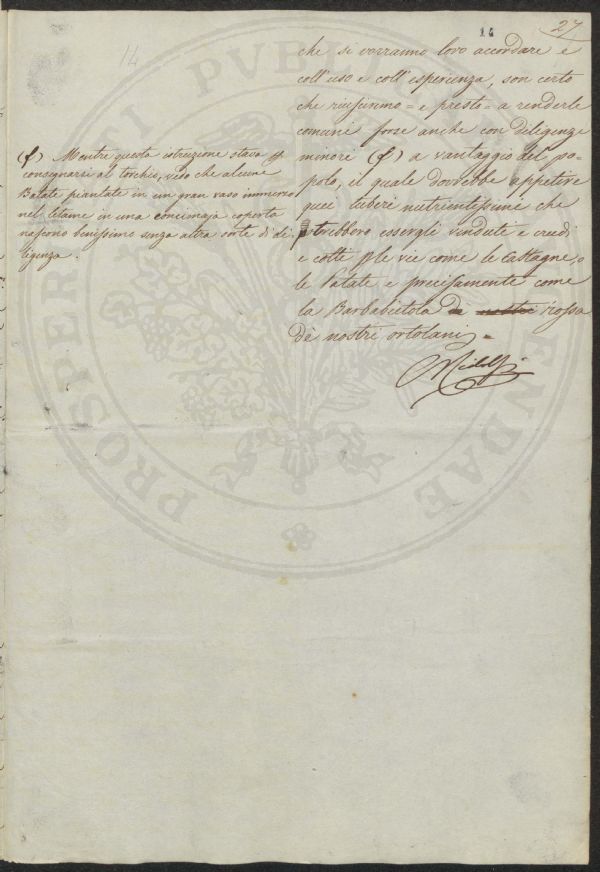 14
27
14
che si vorranno loro accordare e
coll'uso e coll'esperienza, son certo
che riusciremo = e presto = a renderle
comuni forse anche con diligenze
minori (f) a vantaggio del po-
polo, il quale dovrebbe appetire
quei tuberi nutrientissimi che
potrebbero essergli vendute e crudi
e cotti p le vie come le castagne, o
le Patate e precisamente come
la Barbabietola de nostri rossa
dè nostri ortolani =
Ridolfi
(f) Mentre questa istruzione stava p
consegnarsi al torchio, vedo che alcune
Batate piantate in un gran vaso immerso
nel letame in una concimaja coperta
nascono benissimo senza altra sorte di di-
ligenza.
PROSPERITATI PVBLICAE AVGENDAE